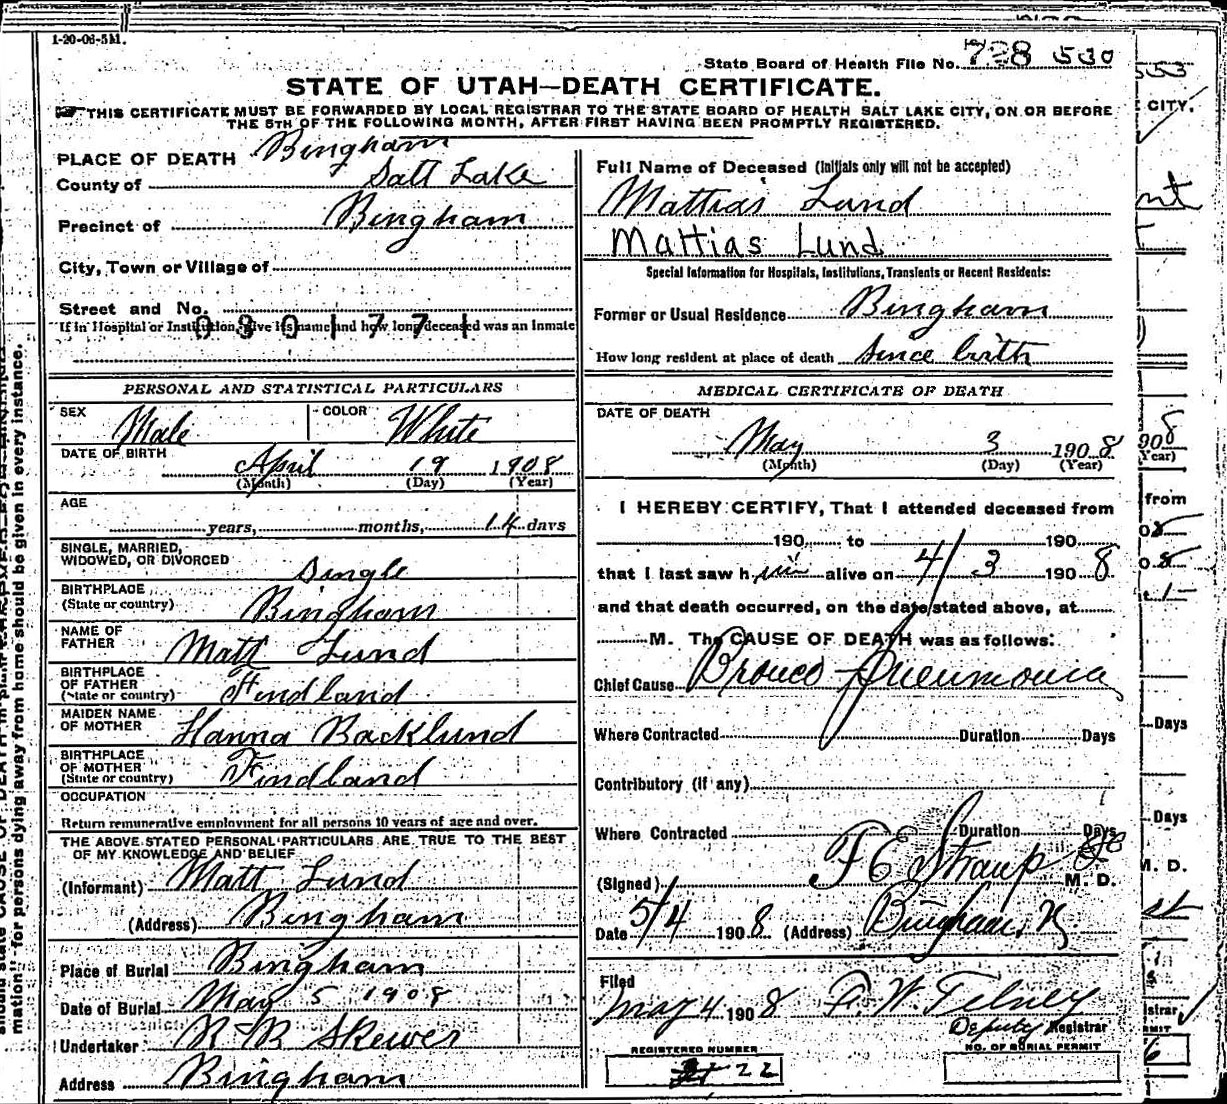 1-20-06-5M.
State Board of Health File No. 728 530
STATE OF UTAH—DEATH CERTIFICATE.
THIS CERTIFICATE MUST BE FORWARDED BY LOCAL REGISTRAR TO THE STATE BOARD OF HEALTH SALT LAKE CITY, ON OR BEFORE
THE 5TH OF THE FOLLOWING MONTH, AFTER FIRST HAVING BEEN PROMPTLY REGISTERED.
PLACE OF DEATH Bingham
County of Salt Lake
Precinct of Bingham
City, Town or Village of
Street and No.
0801771
If in Hospital or Institution, give its name and how long deceased was an Inmate
PERSONAL AND STATISTICAL PARTICULARS
SEX Male COLOR White
DATE OF BIRTH April 19 1908
(Month) (Day) (Year)
AGE
years, months, 14 days
SINGLE, MARRIED,
WIDOWED, OR DIVORCED Single
BIRTHPLACE
(State or country) Bingham
NAME OF
FATHER Matt Lund
BIRTHPLACE
OF FATHER
(State or country) Findland
MAIDEN NAME
OF MOTHER Hanna Backlund
BIRTHPLACE
OF MOTHER
(State or country) Findland
OCCUPATION
Return remunerative employment for all persons 10 years of age and over.
THE ABOVE STATED PERSONAL PARTICULARS ARE TRUE TO THE BEST
OF MY KNOWLEDGE AND BELIEF
(Informant) Matt Lund
(Address) Bingham
Place of Burial Bingham
Date of Burial May 5 1908
Undertaker Skewes
Address Bingham
Full Name of Deceased (Initials only will not be accepted)
Mattias Lund
Mattias Lund
Special Information for Hospitals, Institutions, Transients or Recent Residents:
Former or Usual Residence Bingham
How long resident at place of death since birth
MEDICAL CERTIFICATE OF DEATH
DATE OF DEATH
May 3 1908
(Month) (Day) (Year)
I HEREBY CERTIFY, That I attended deceased from
190 to 190
that I last saw him alive on 4/3 1908
and that death occurred, on the date stated above, at
M. The CAUSE OF DEATH was as follows:
Chief Cause Bronco-Pneumonia
Where Contracted Duration Days
Contributory (if any)
Where Contracted Duration Days
(Signed) F E Straup M. D.
Date 5/4 1908 (Address) Bingham,
Filed
May 4 1908 F. W. Telney
Deputy Registrar
REGISTERED NUMBER
22
NO. OF BURIAL PERMIT
mation" for persons dying away from home should be given in every instance.
CITY.
from
Days
Days
M. D.